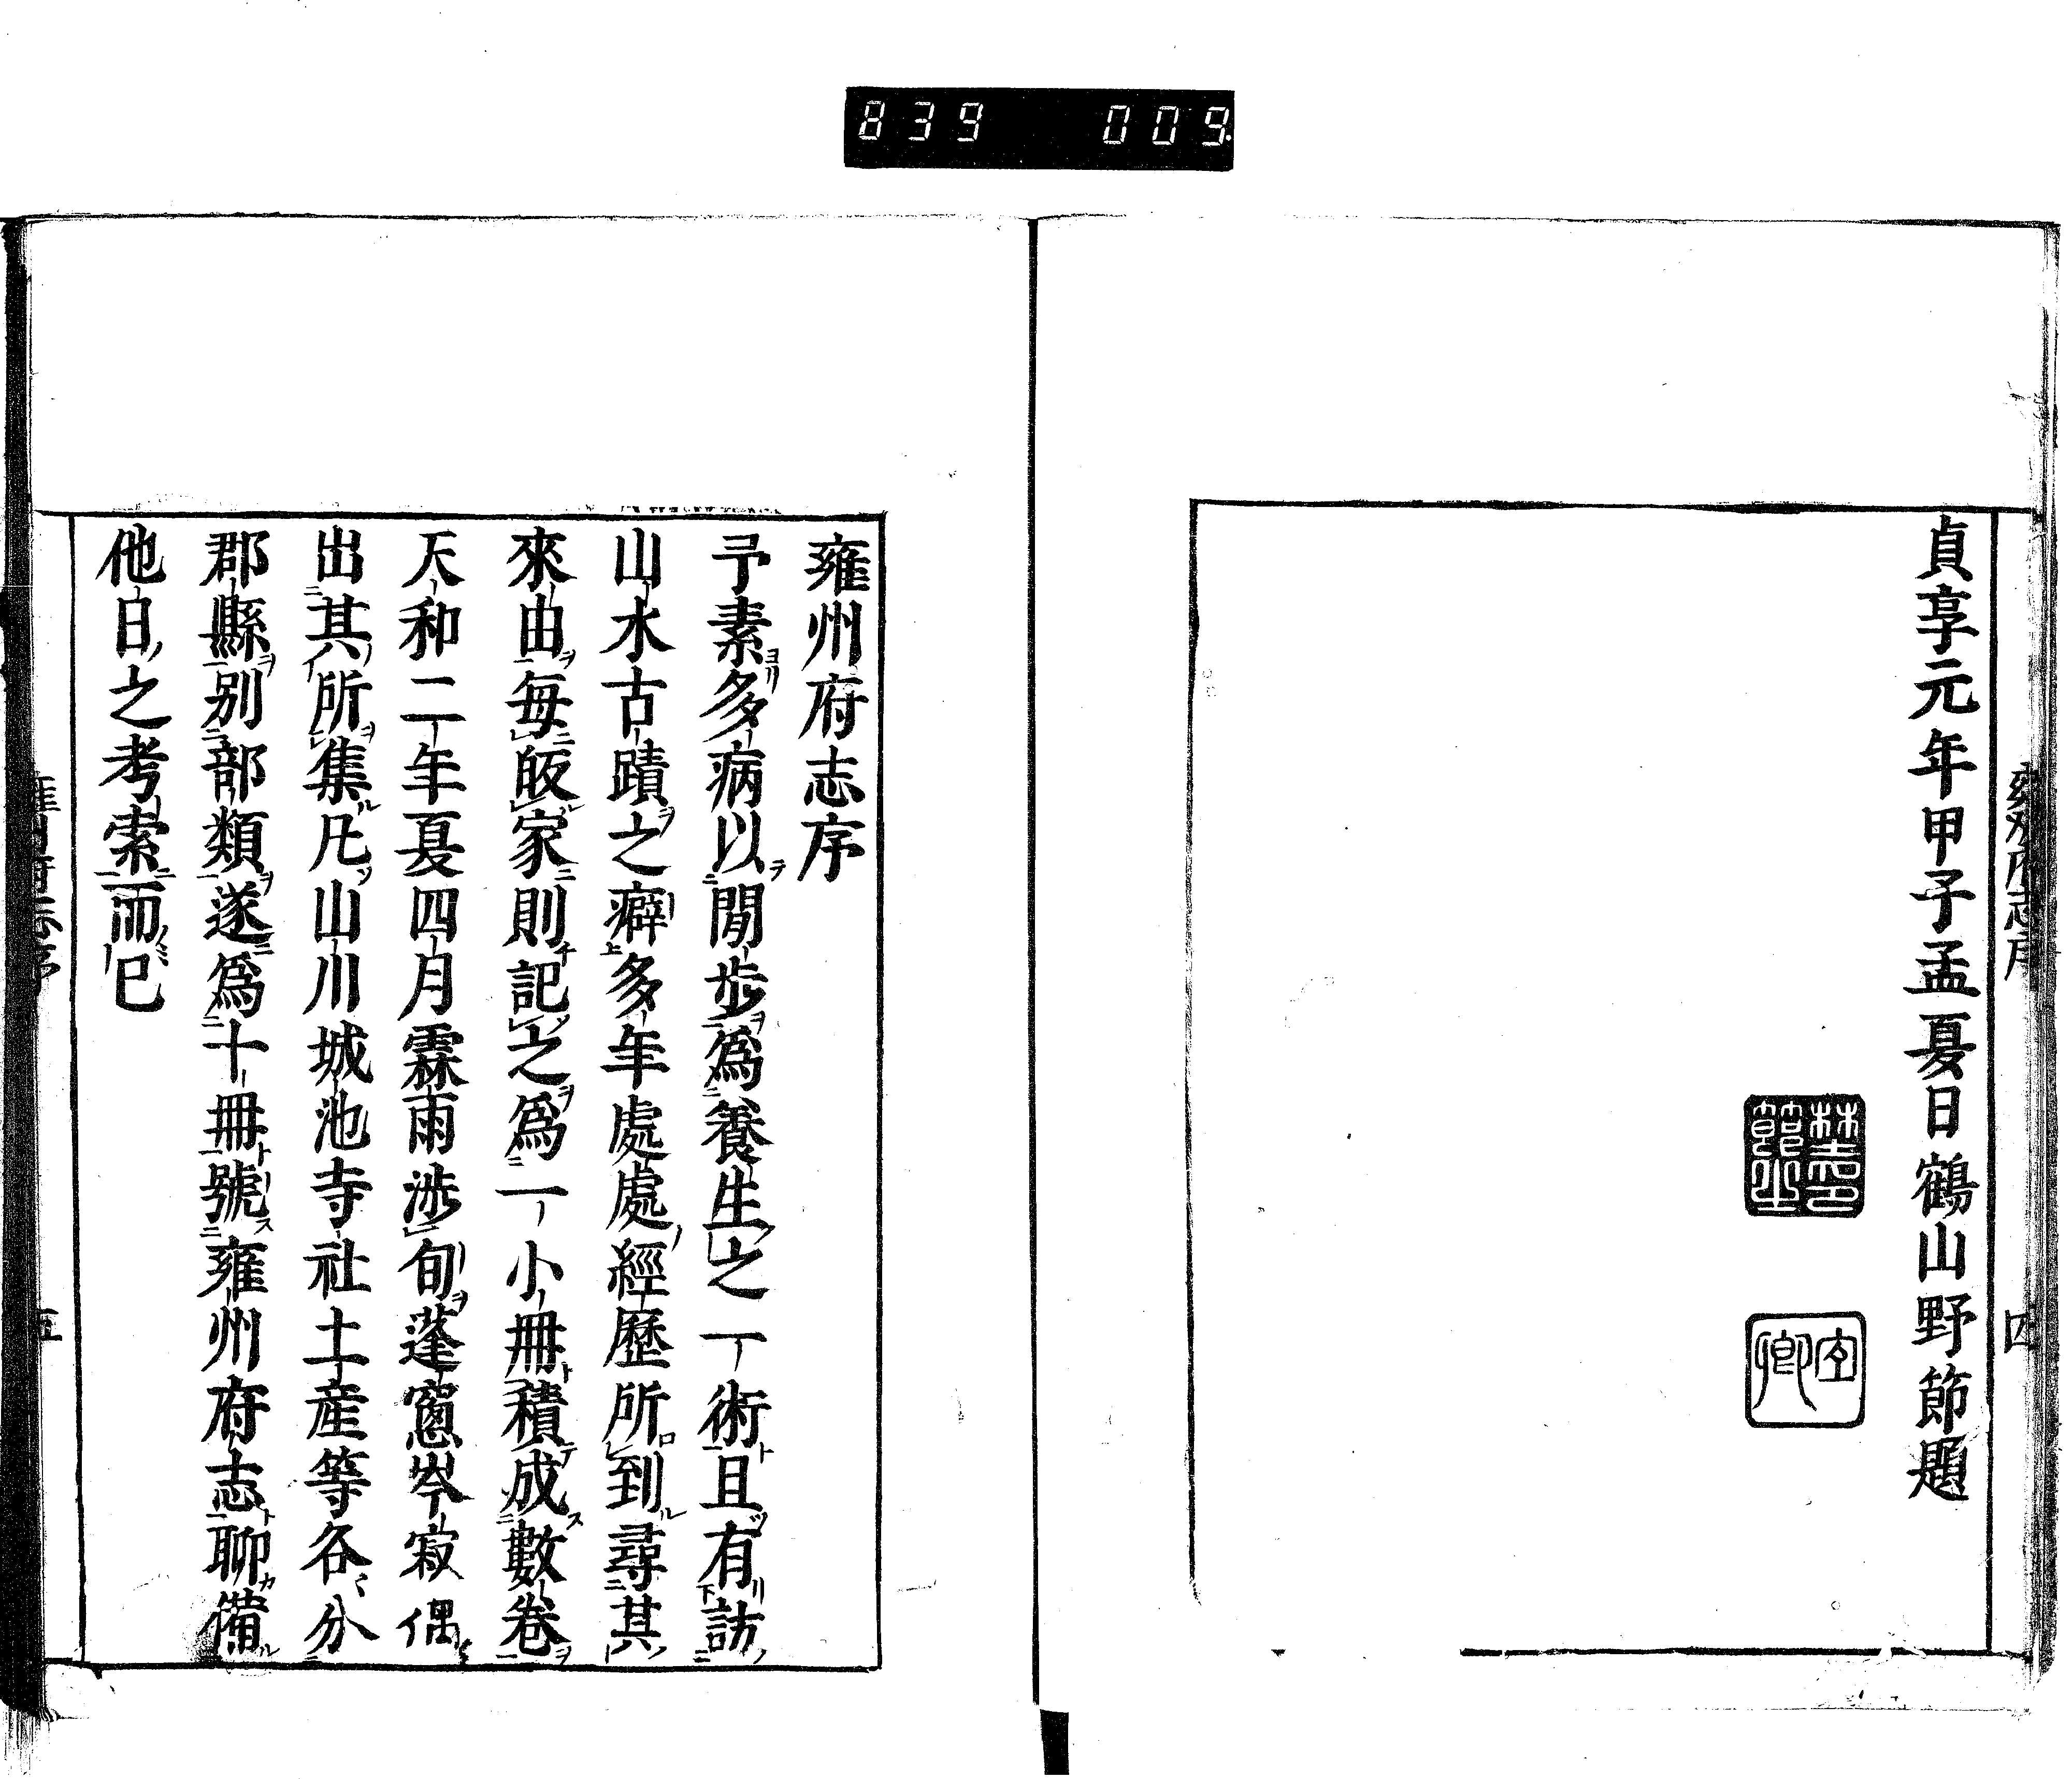 839 009
貞享元年甲子孟夏日鶴山野節題
雍州府志序
四
雍州府志序
予素多病以閒歩爲養生之一術且有訪
山水古蹟之癖多年處處經歷所到尋其
來由毎皈家則記之爲一小冊積成數卷
天和二年夏四月霖雨渉旬蓬窻岑寂偶
出其所集凡山川城池寺社土産等各分
郡縣別部類遂爲十冊號雍州府志聊備
他日之考索而已